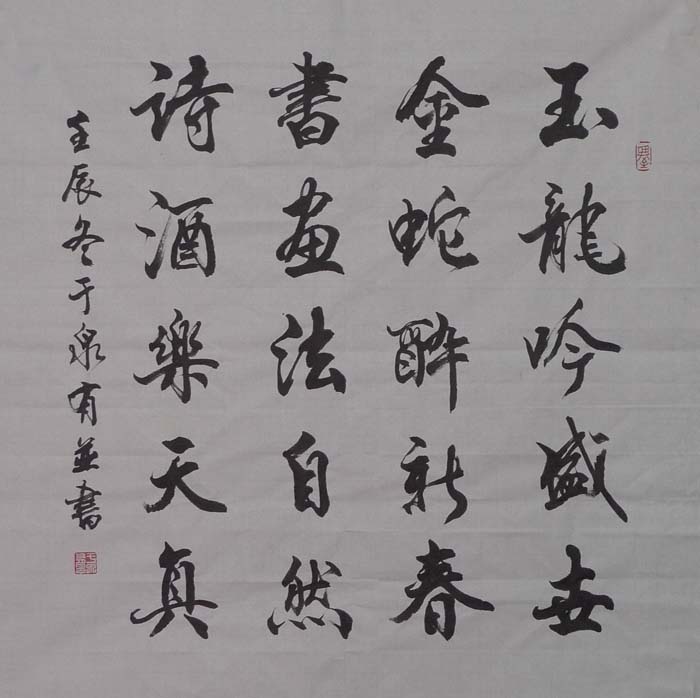 玉龍吟盛世
金蛇醉新春
書畫法自然
詩酒樂天真
壬辰冬于泉有並書